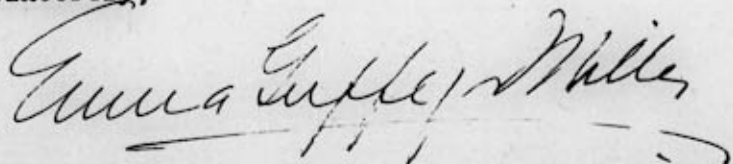 Emma Guffey Miller